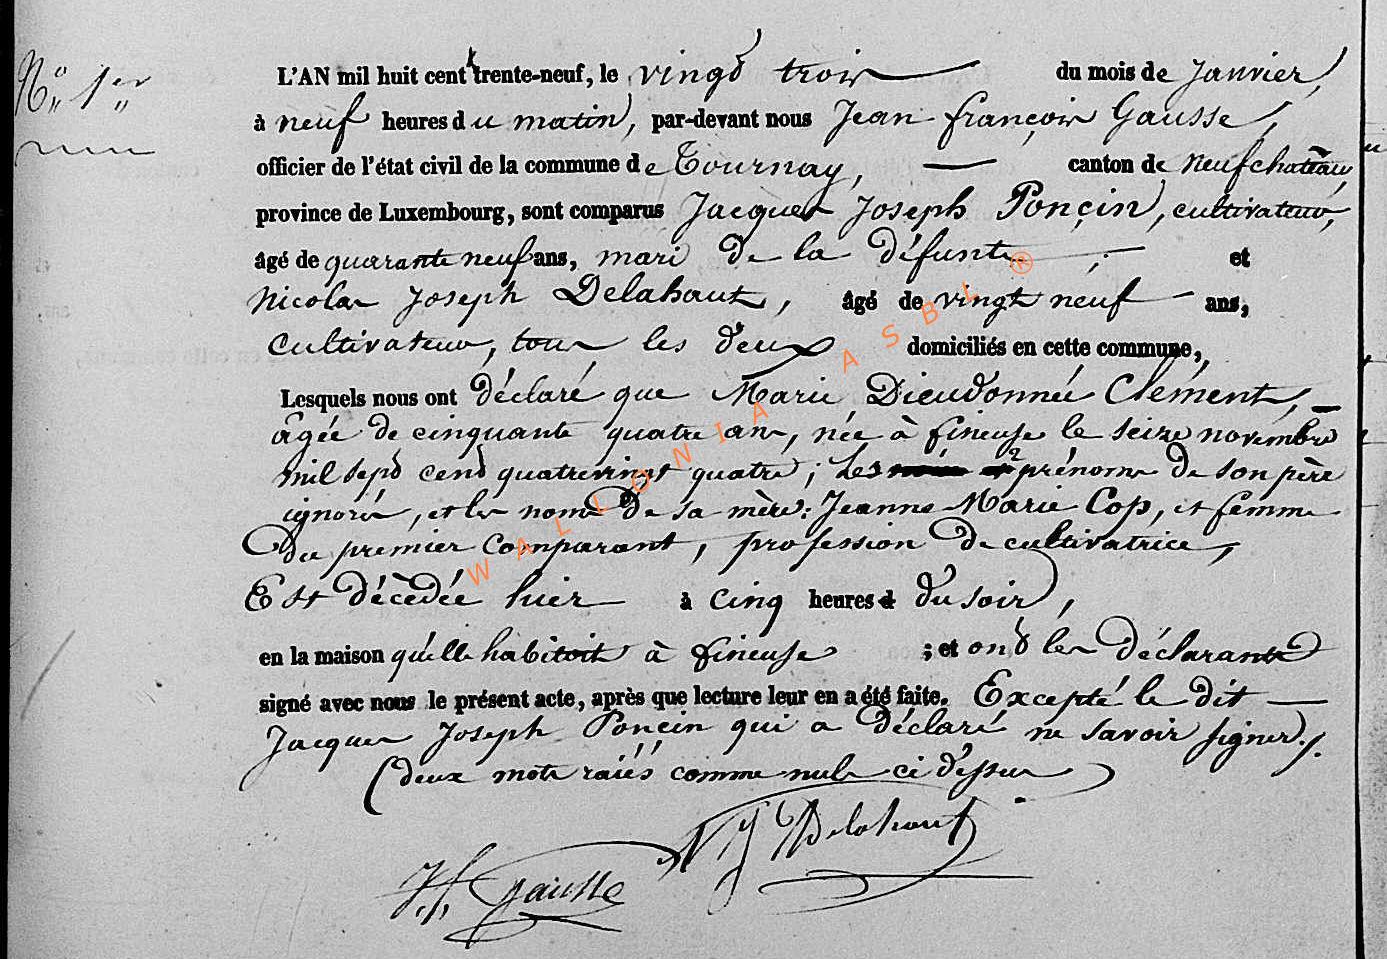 N° 1er
L'AN mil huit cent trente-neuf, le vingt trois du mois de Janvier,
à neuf heures du matin, par-devant nous Jean françois Gausse,
officier de l'état civil de la commune de Tournay, canton de neufchateau,
province de Luxembourg, sont comparus Jacques Joseph Ponçin, cultivateur,
âgé de quarante neuf ans, mari de la défunte ; et
Nicolas Joseph Delahaut, âgé de vingt neuf ans,
cultivateur, tous les deux domiciliés en cette commune,
Lesquels nous ont déclaré que Marie Dieudonnée Clément,
âgée de cinquante quatre ans, née à fineuse le seize novembre
mil sept cent quatrevingt quatre ; les prénoms de son père
ignorés, et les noms de sa mère : Jeanne Marie Cop, et femme
du premier Comparant, profession de cultivatrice,
Est décédée hier à cinq heures du soir,
en la maison qu'elle habitoit à fineuse ; et ont les déclarants
signé avec nous le présent acte, après que lecture leur en a été faite. Excepté le dit
Jacques Joseph Poncin qui a déclaré ne savoir signer./.
(deux mots raiés comme nuls ci dessus)
NJ Delahaut
J.f. Gausse
WALLONIA ASBL ®